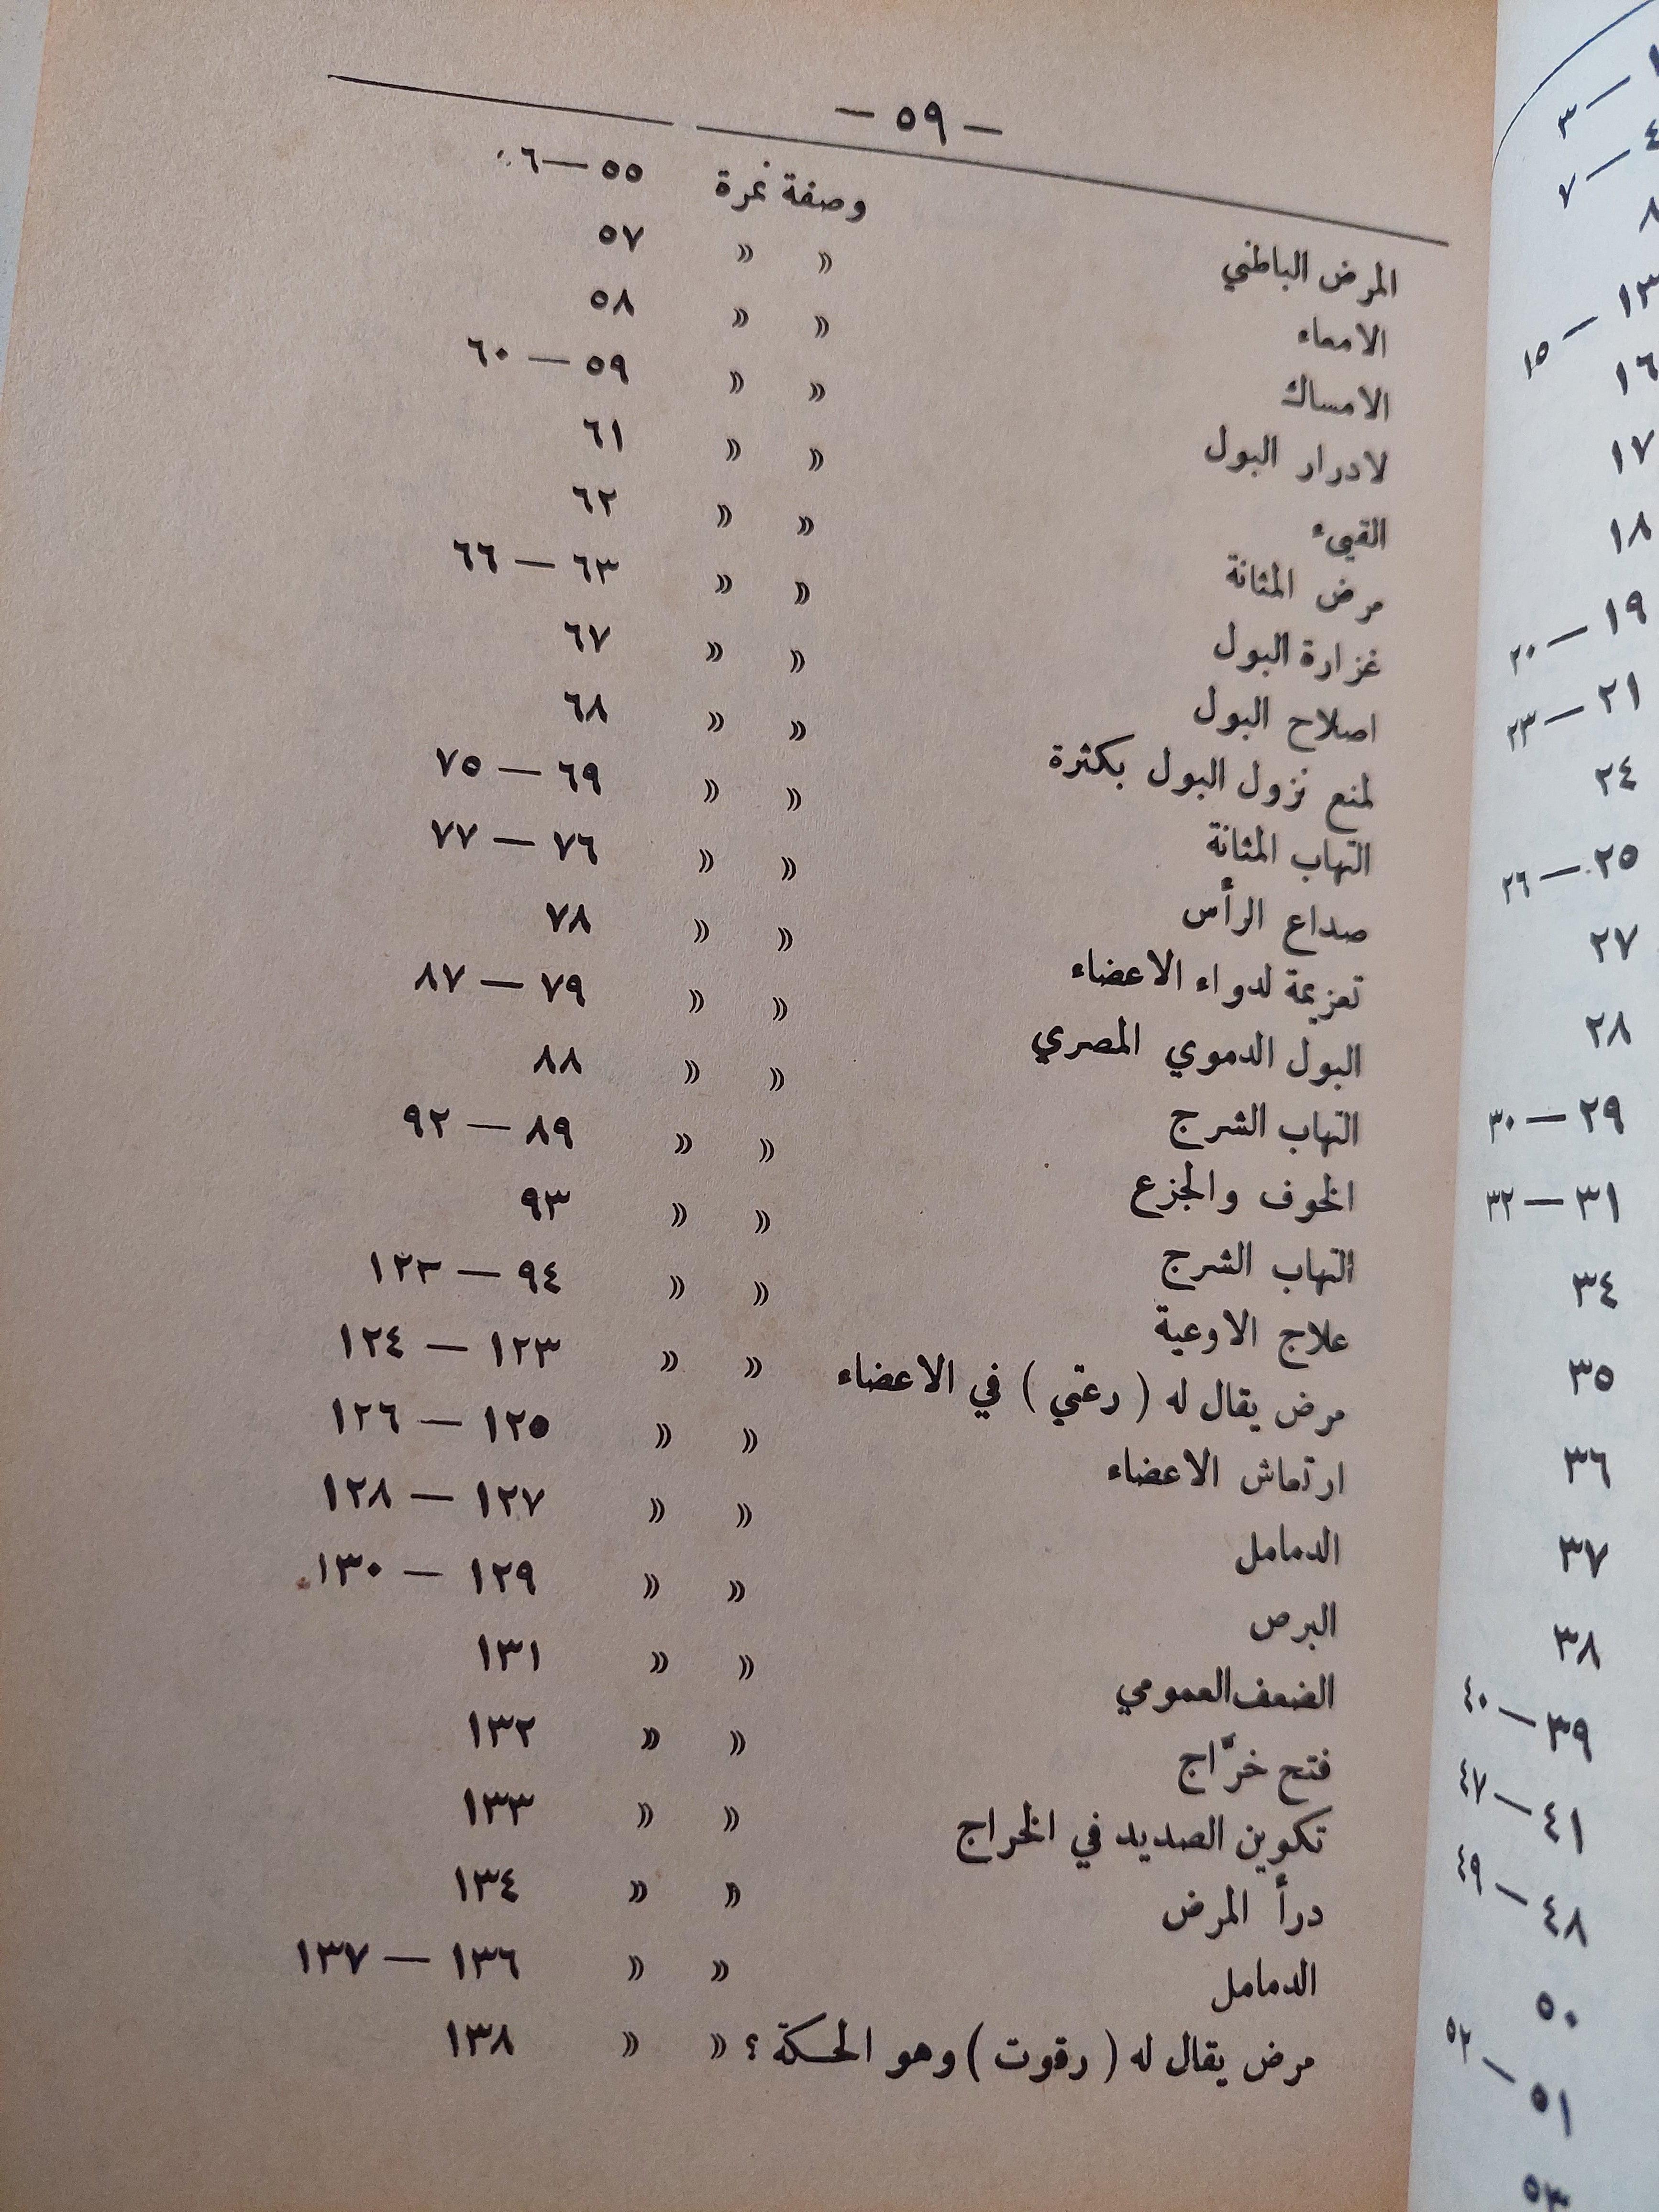 — ٥٩ —
المرض الباطني وصفة نمرة ٥٥—٦
الامعاء » » ٥٧
الامساك » » ٥٨
لادرار البول » » ٥٩ — ٦٠
القيء » » ٦١
مرض المثانة » » ٦٢
غزارة البول » » ٦٣ — ٦٦
اصلاح البول » » ٦٧
لمنع نزول البول بكثرة » » ٦٨
التهاب المثانة » » ٦٩ — ٧٥
صداع الرأس » » ٧٦ — ٧٧
تعزيمة لدواء الاعضاء » » ٧٨
البول الدموي المصري » » ٧٩ — ٨٧
التهاب الشرج » » ٨٨
الخوف والجزع » » ٨٩ — ٩٢
التهاب الشرج » » ٩٣
علاج الاوعية » » ٩٤ — ١٢٢
مرض يقال له ( رعتي ) في الاعضاء » » ١٢٣ — ١٢٤
ارتعاش الاعضاء » » ١٢٥ — ١٢٦
الدمامل » » ١٢٧ — ١٢٨
البرص » » ١٢٩ — ١٣٠
الضعف العمومي » » ١٣١
فتح خرّاج » » ١٣٢
تكوين الصديد في الخراج » » ١٣٣
درأ المرض » » ١٣٤
الدمامل » » ١٣٦ — ١٣٧
مرض يقال له ( رقوت ) وهو الحكة ؟ » » ١٣٨
١ — ٣
٤ — ٧
٨
١٣ — ١٥
١٦
١٧
١٨
١٩ — ٢٠
٢١ — ٢٣
٢٤
٢٥ — ٢٦
٢٧
٢٨
٢٩ — ٣٠
٣١ — ٣٢
٣٤
٣٥
٣٦
٣٧
٣٨
٣٩ — ٤٠
٤١ — ٤٧
٤٨ — ٤٩
٥٠
٥١ — ٥٢
٥٣